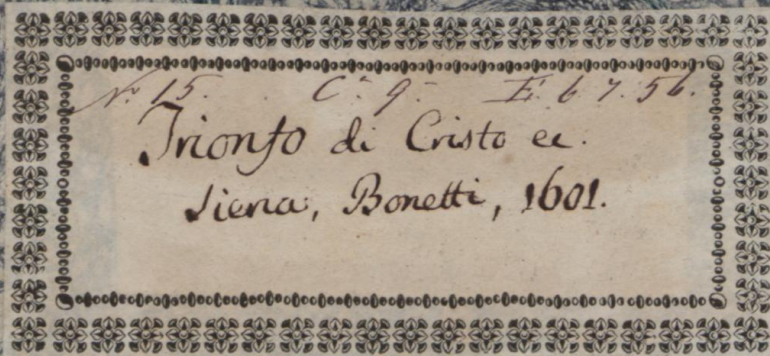 No. 15. C. 9. E. 6 7. 56.
Trionfo di Cristo ec.
Siena, Bonetti, 1601.